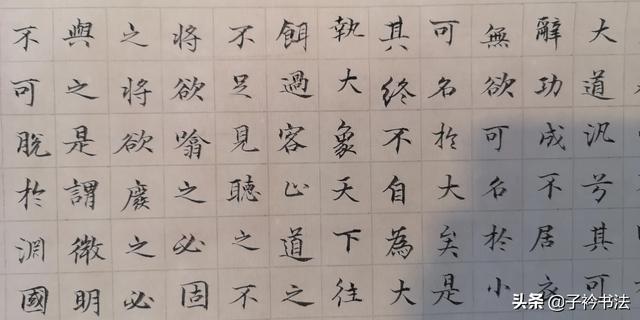 大道汎兮其可
辭功成不居衣
無欲可名於小
可名於大矣是
其終不自為大
執大象天下往
餌過客止道之
不足見聽之不
將欲噏之必固
之將欲廢之必
與之是謂微明
不可脫於淵國
头条@子衿书法